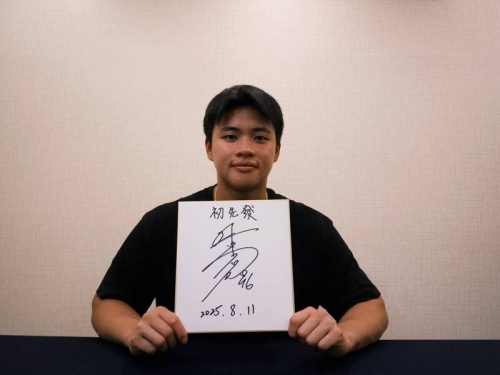 初先發
96
2025.8.11